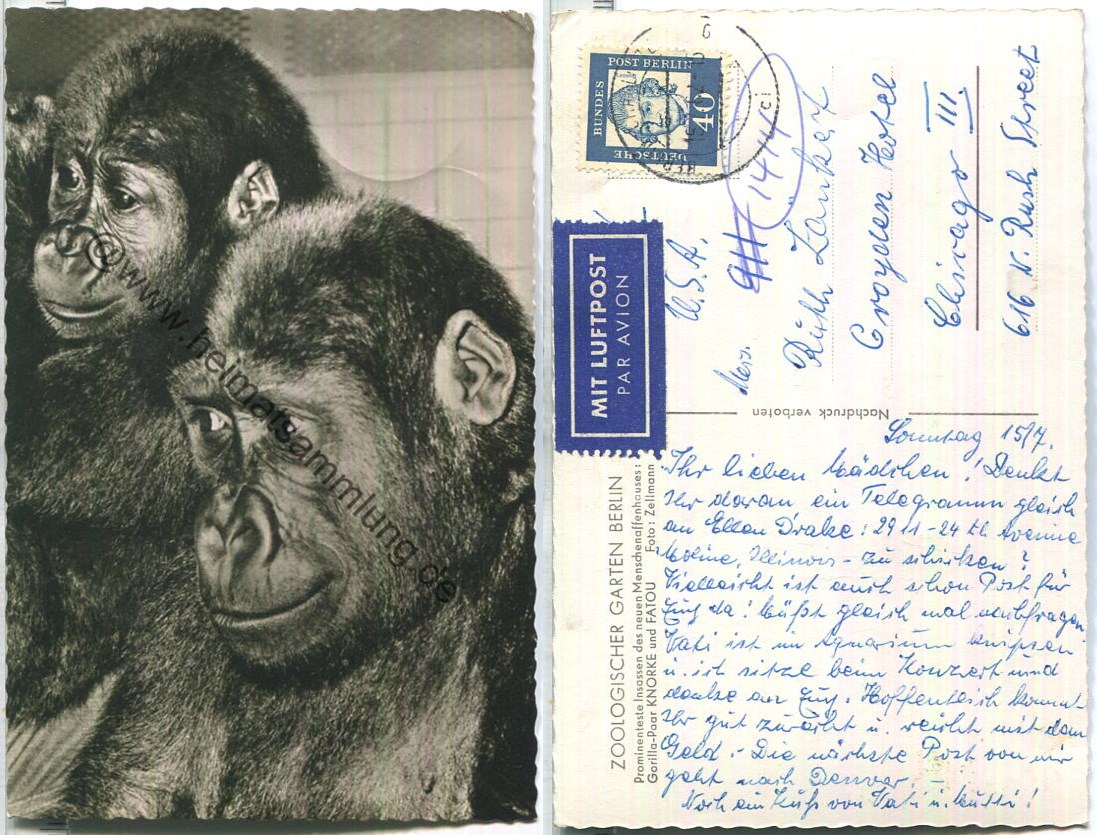 © www.heimatsammlung.de
DEUTSCHE
BUNDES
POST BERLIN
40
MIT LUFTPOST
PAR AVION
U.S.A.
1414
Ruth
Croyden Hotel
Chicago III.
616 N. Rush Street
Nachdruck verboten
ZOOLOGISCHER GARTEN BERLIN
Prominenteste Insassen des neuen Menschenaffenhauses:
Gorilla-Paar KNORKE und FATOU Foto: Zellmann
Sonntag 15/7.
Ihr lieben Mädchen! Denkt
Ihr daran ein Telegramm gleich
an Ellen Drake: 2911-24 th Avenue
Moline, Illinois - zu schicken?
Vielleicht ist auch schon Post für
Euch da! Müßt gleich mal nachfragen
Vati ist im Aquarium knipsen
u. ich sitze beim Konzert und
denke an Euch. Hoffentlich kommt
Ihr gut zurecht u. reicht mit dem
Geld. - Die nächste Post von mir
geht nach Denver. -
Noch ein Kuß von Vati u. Mutti!